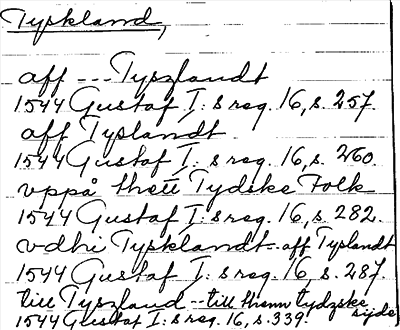 Tyskland,
aff --- Tyszlandt
1544 Gustaf I:s reg. 16, s. 257.
aff Tyslandt
1544 Gustaf I:s reg. 16, s. 260
vppå thett Tydske Folk
1544 Gustaf I:s reg. 16, s. 282.
vdhi Tysklandt - aff Tyslandt
1544 Gustaf I:s reg. 16 s. 287.
till Tyszland --- till thenn tydzske sijde
1544 Gustaf I:s reg. 16, s. 339.